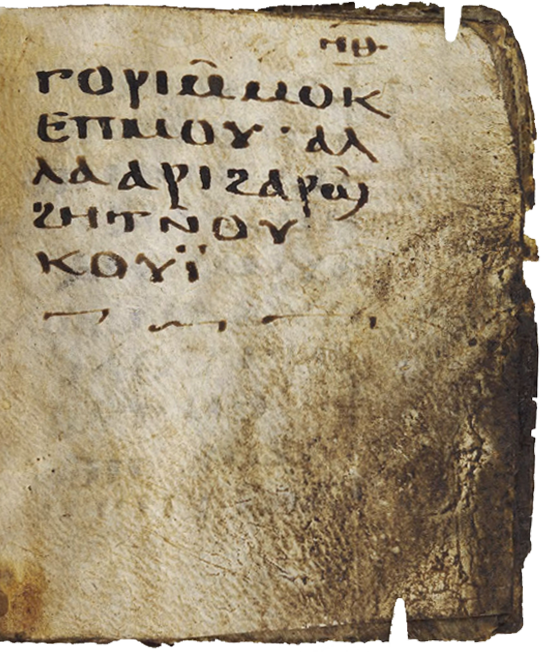 ⲅⲟⲣⲓⲙ̅ⲙⲟⲕ
ⲉⲡⲙⲟⲩ · ⲁⲗ
ⲗⲁⲁⲣⲓϩⲁⲣϣ̀
ϩⲏⲧⲛ̅ⲟⲩ
ⲕⲟⲩⲓ̈